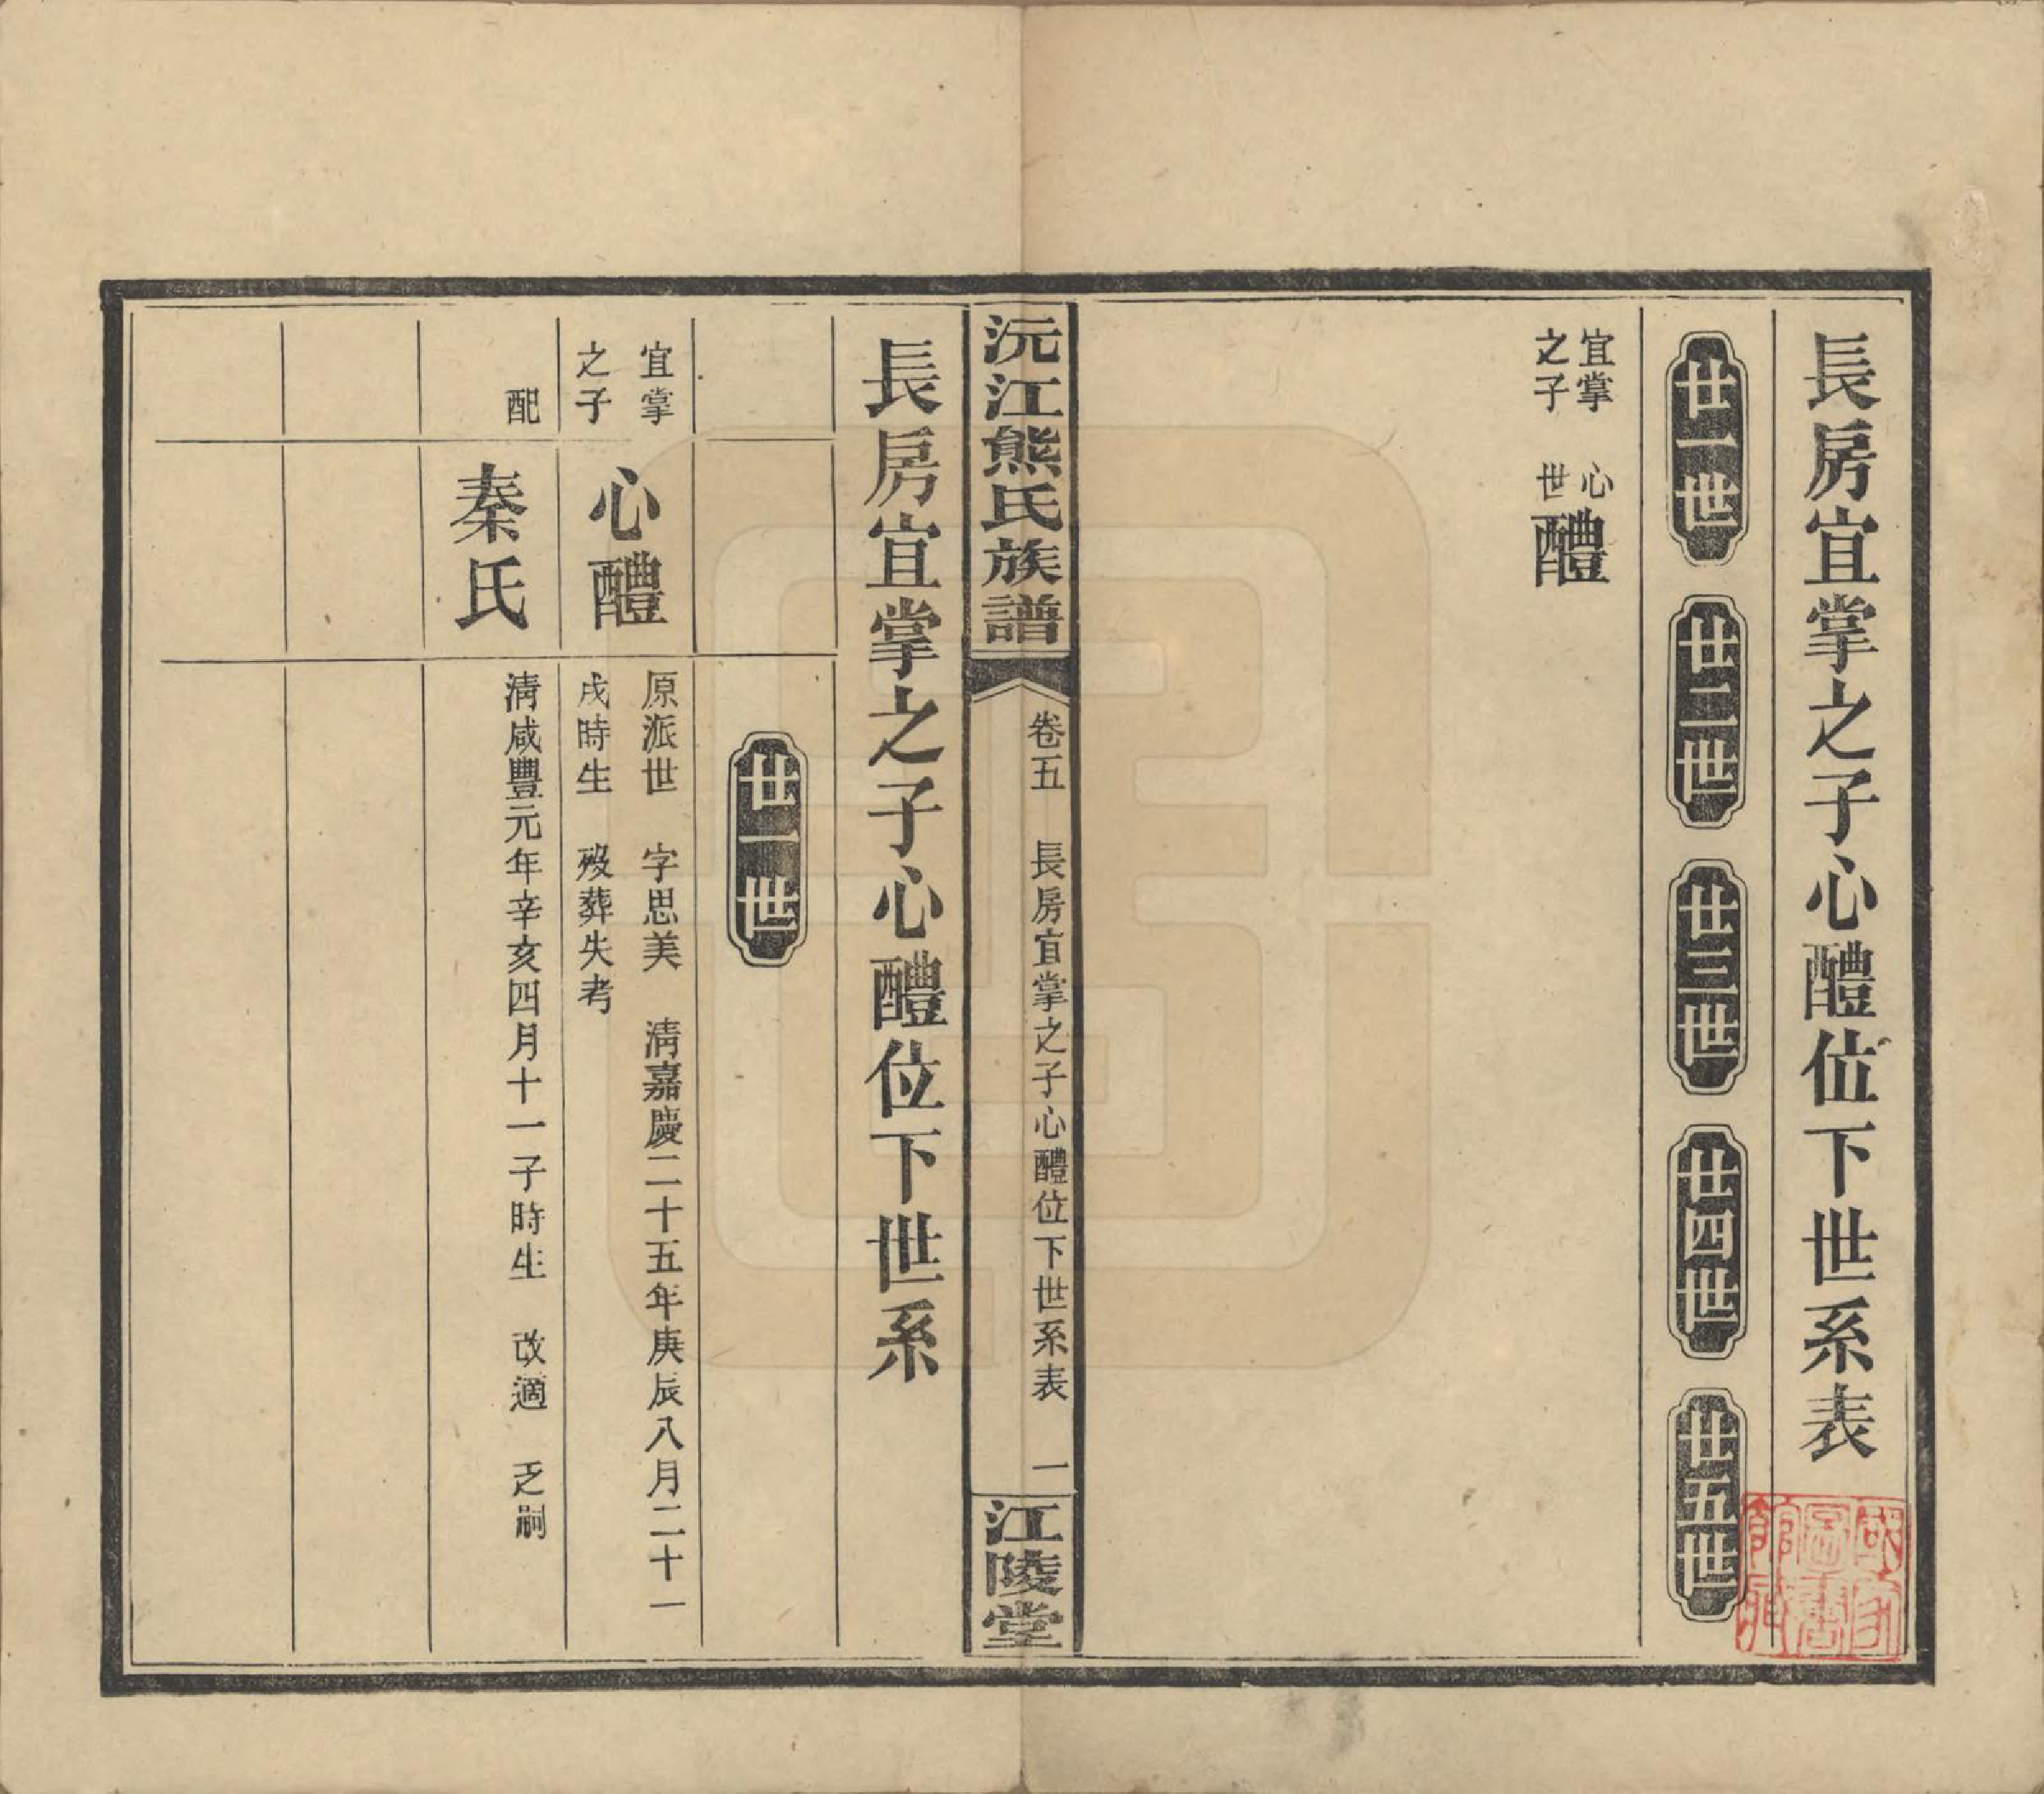 長房宜掌之子心醴位下世系表
廿一世
廿二世
廿三世
廿四世
廿五世
宜掌
之子
心
世
醴
沅江熊氏族譜
卷五　長房宜掌之子心醴位下世系表　一
江陵堂
長房宜掌之子心醴位下世系
廿一世
宜掌
之子
心醴
原派世　字思美　清嘉慶二十五年庚辰八月二十一
戌時生　歿葬失考
配
秦氏
清咸豐元年辛亥四月十一子時生　改適　乏嗣
國家
圖書
館藏